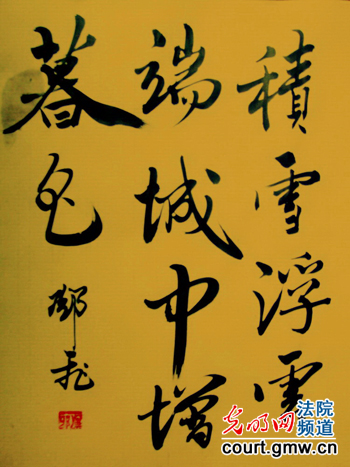 積雪浮雲
端城中增
暮色
鄧飛
光明网 法院频道
court.gmw.cn